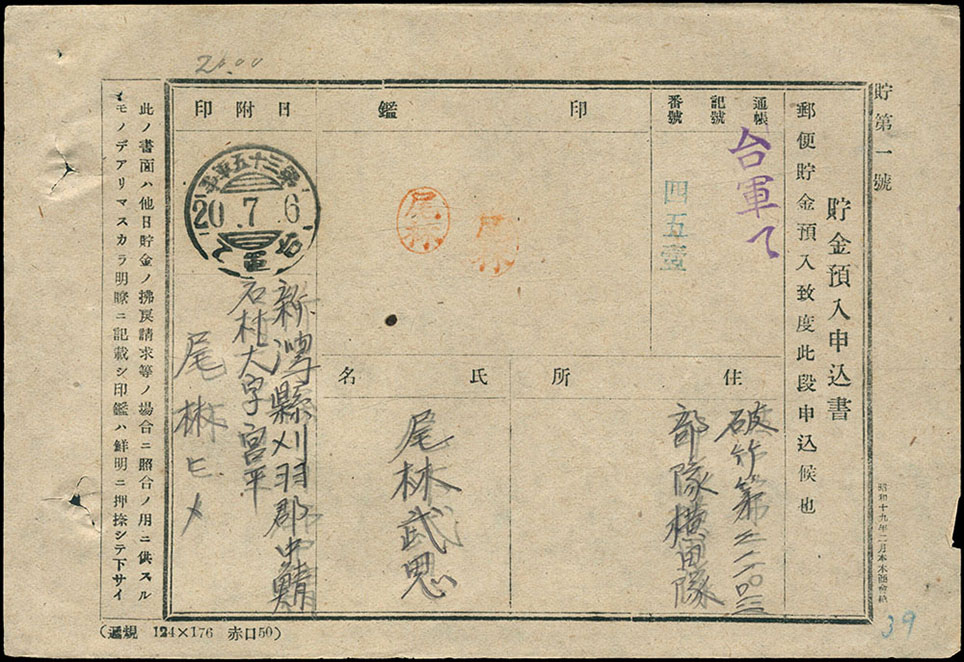 貯第一號
貯金預入申込書
郵便貯金預入致度此段申込候也
通帳
記號
番號
台軍て
四五壹
印鑑
尾林
尾林
日附印
第三十五軍事
20.7.6
台軍て
住所
破竹第二一〇〇三
部隊横田隊
氏名
尾林武思
新潟縣刈羽郡中鯖
石村大字宮平
尾林ヒメ
此ノ書面ハ他日貯金ノ拂戻請求等ノ場合ニ照合ノ用ニ供スル
モノデアリマスカラ明瞭ニ記載シ印鑑ハ鮮明ニ押捺シテ下サイ
昭和十九年二月
(遞規 124×176 赤口50)
20.00
39